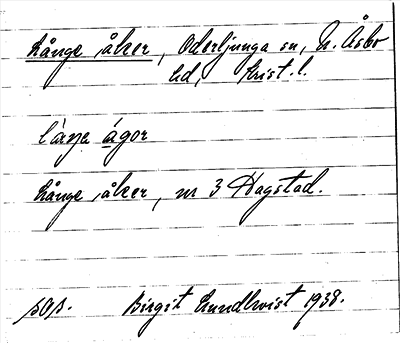 Långe åker, Oderljunga sn, N. Åsbo
hd, Krist. l.
långa ågor
Långe åker, nr 3 Hagstad.
pOp. Birgit Lundkvist 1938.